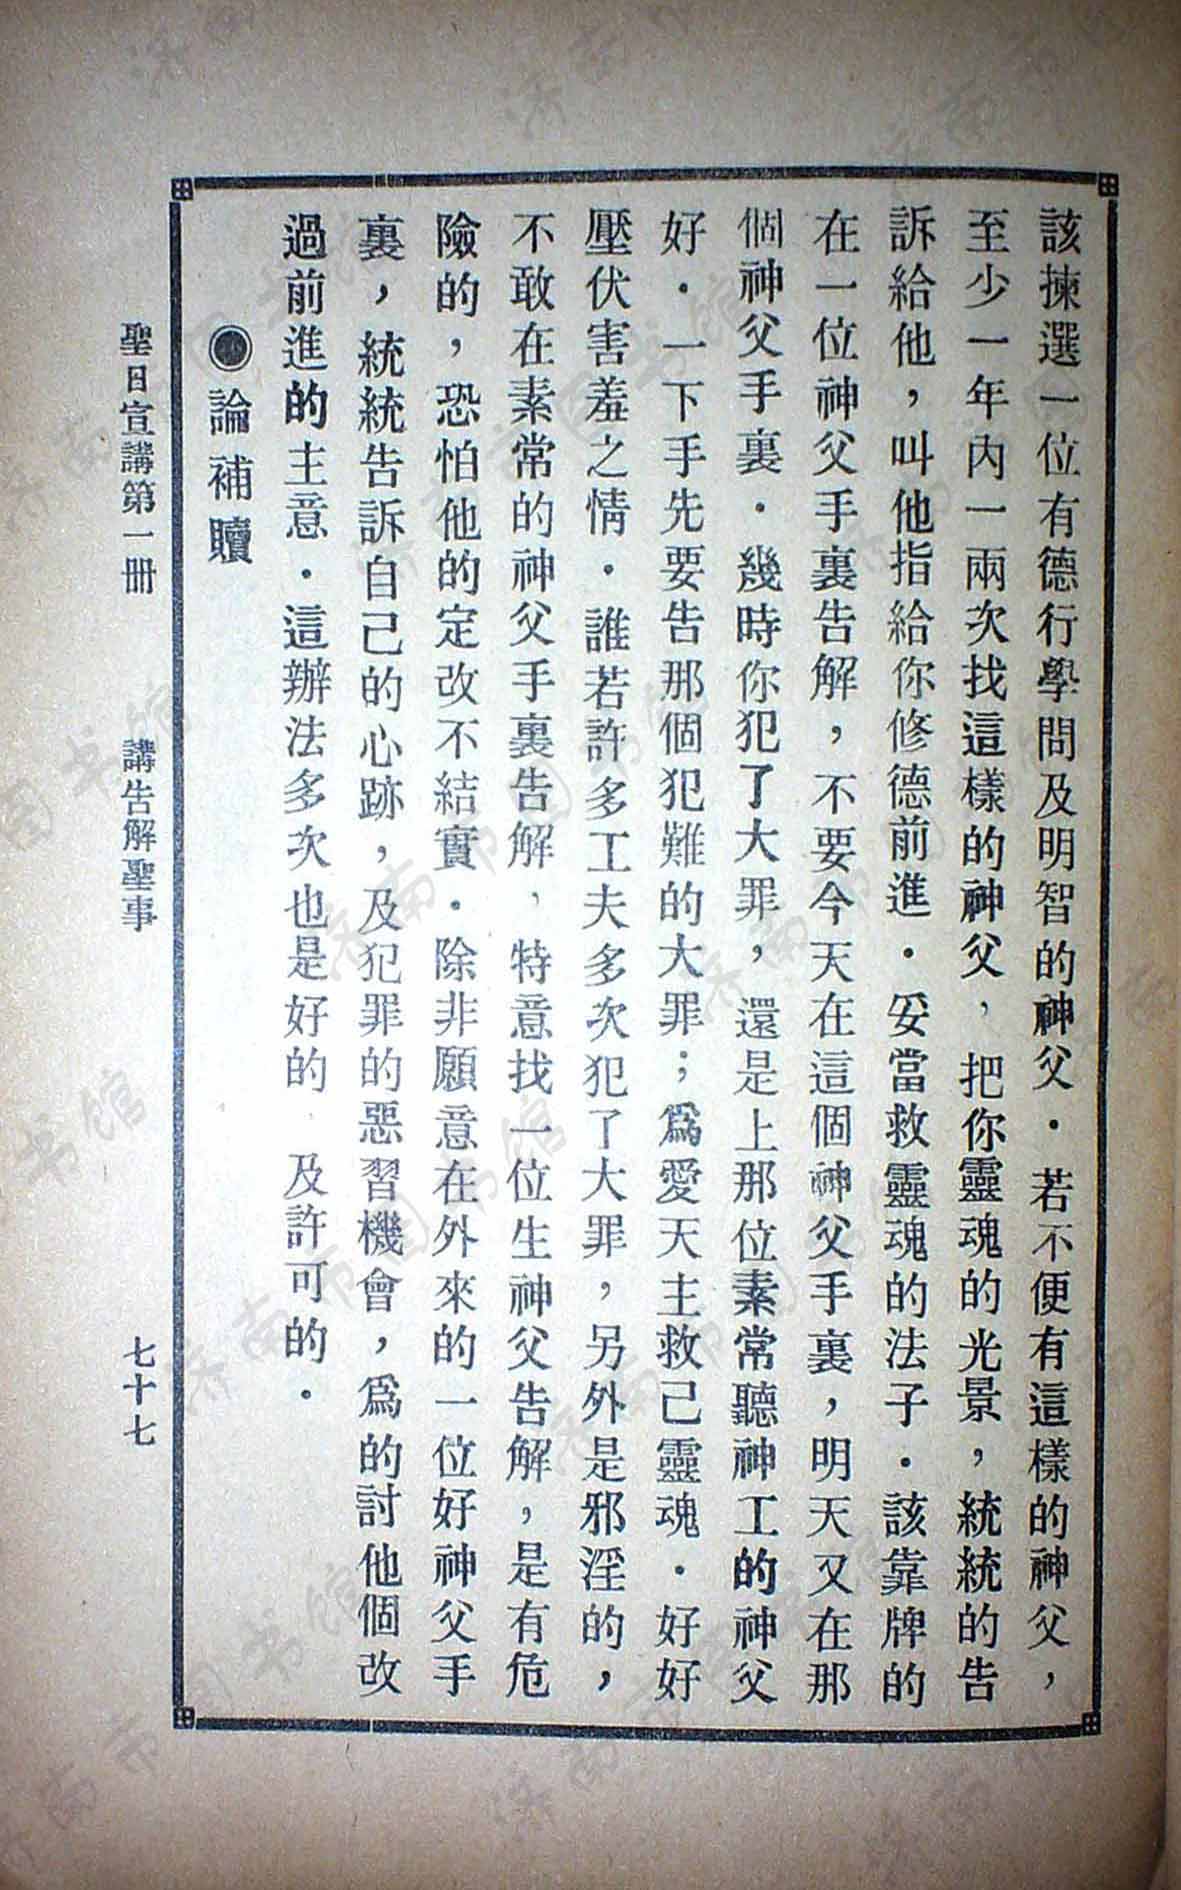 該揀選一位有德行學問及明智的神父．若不便有這樣的神父，
至少一年內一兩次找這樣的神父，把你靈魂的光景，統統的告
訴給他，叫他指給你修德前進．妥當救靈魂的法子．該靠牌的
在一位神父手裏告解，不要今天在這個神父手裏，明天又在那
個神父手裏．幾時你犯了大罪，還是上那位素常聽神工的神父
好．一下手先要告那個犯難的大罪；爲愛天主救己靈魂．好好
壓伏害羞之情．誰若許多工夫多次犯了大罪，另外是邪淫的，
不敢在素常的神父手裏告解，特意找一位生神父告解，是有危
險的，恐怕他的定改不結實．除非願意在外來的一位好神父手
裏，統統告訴自己的心跡，及犯罪的惡習機會，爲的討他個改
過前進的主意．這辦法多次也是好的．及許可的．
◉論補贖
聖日宣講第一冊　講告解聖事　七十七
济南市图书馆